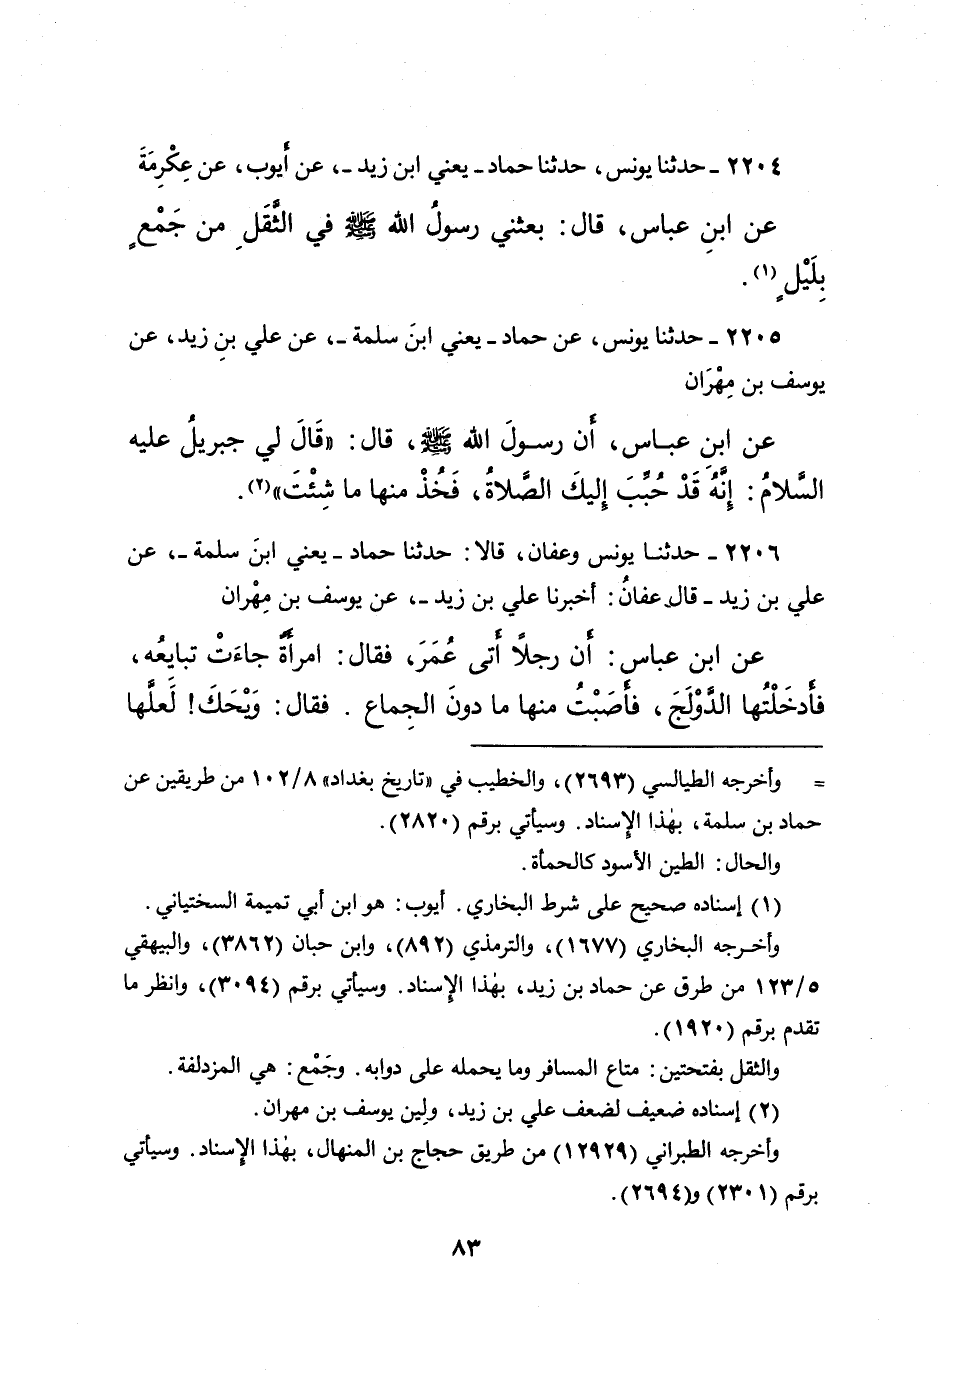 ٢٢٠٤ ـ حدثنا يونس، حدثنا حماد ـ يعني ابن زيد ـ، عن أيوب، عن عِكْرِمَةَ
عن ابنِ عباس، قال: بعثني رسولُ الله ﷺ في الثَّقَلِ من جَمْعٍ
بِلَيْلٍ(١).
٢٢٠٥ ـ حدثنا يونس، عن حماد ـ يعني ابنَ سلمة ـ، عن علي بنِ زيد، عن
يوسف بن مِهْرَان
عن ابن عباس، أن رسولَ الله ﷺ، قال: «قَالَ لي جبريلُ عليه
السَّلامُ: إِنَّهُ قَدْ حُبِّبَ إِليكَ الصَّلاةُ، فَخُذْ منها ما شِئْتَ»(٢).
٢٢٠٦ ـ حدثنا يونس وعفان، قالا: حدثنا حماد ـ يعني ابنَ سلمة ـ، عن
علي بن زيد ـ قال عفانُ: أخبرنا علي بن زيد ـ، عن يوسف بن مِهْران
عن ابن عباس: أن رجلاً أتى عُمَرَ، فقال: امرأةٌ جاءَتْ تبايِعُه،
فأَدخَلْتُها الدَّوْلَجَ، فأَصَبْتُ منها ما دونَ الجِماع. فقال: وَيْحَكَ! لَعلَّها
= وأخرجه الطيالسي (٢٦٩٣)، والخطيب في «تاريخ بغداد» ١٠٢/٨ من طريقين عن
حماد بن سلمة، بهٰذا الإِسناد. وسيأتي برقم (٢٨٢٠).
والحال: الطين الأسود كالحمأة.
(١) إسناده صحيح على شرط البخاري. أيوب: هو ابن أبي تميمة السختياني.
وأخرجه البخاري (١٦٧٧)، والترمذي (٨٩٢)، وابن حبان (٣٨٦٢)، والبيهقي
١٢٣/٥ من طرق عن حماد بن زيد، بهٰذا الإِسناد. وسيأتي برقم (٣٠٩٤)، وانظر ما
تقدم برقم (١٩٢٠).
والثقل بفتحتين: متاع المسافر وما يحمله على دوابه. وجَمْع: هي المزدلفة.
(٢) إسناده ضعيف لضعف علي بن زيد، ولِين يوسف بن مهران.
وأخرجه الطبراني (١٢٩٢٩) من طريق حجاج بن المنهال، بهٰذا الإِسناد. وسيأتي
برقم (٢٣٠١) و(٢٦٩٤).
٨٣